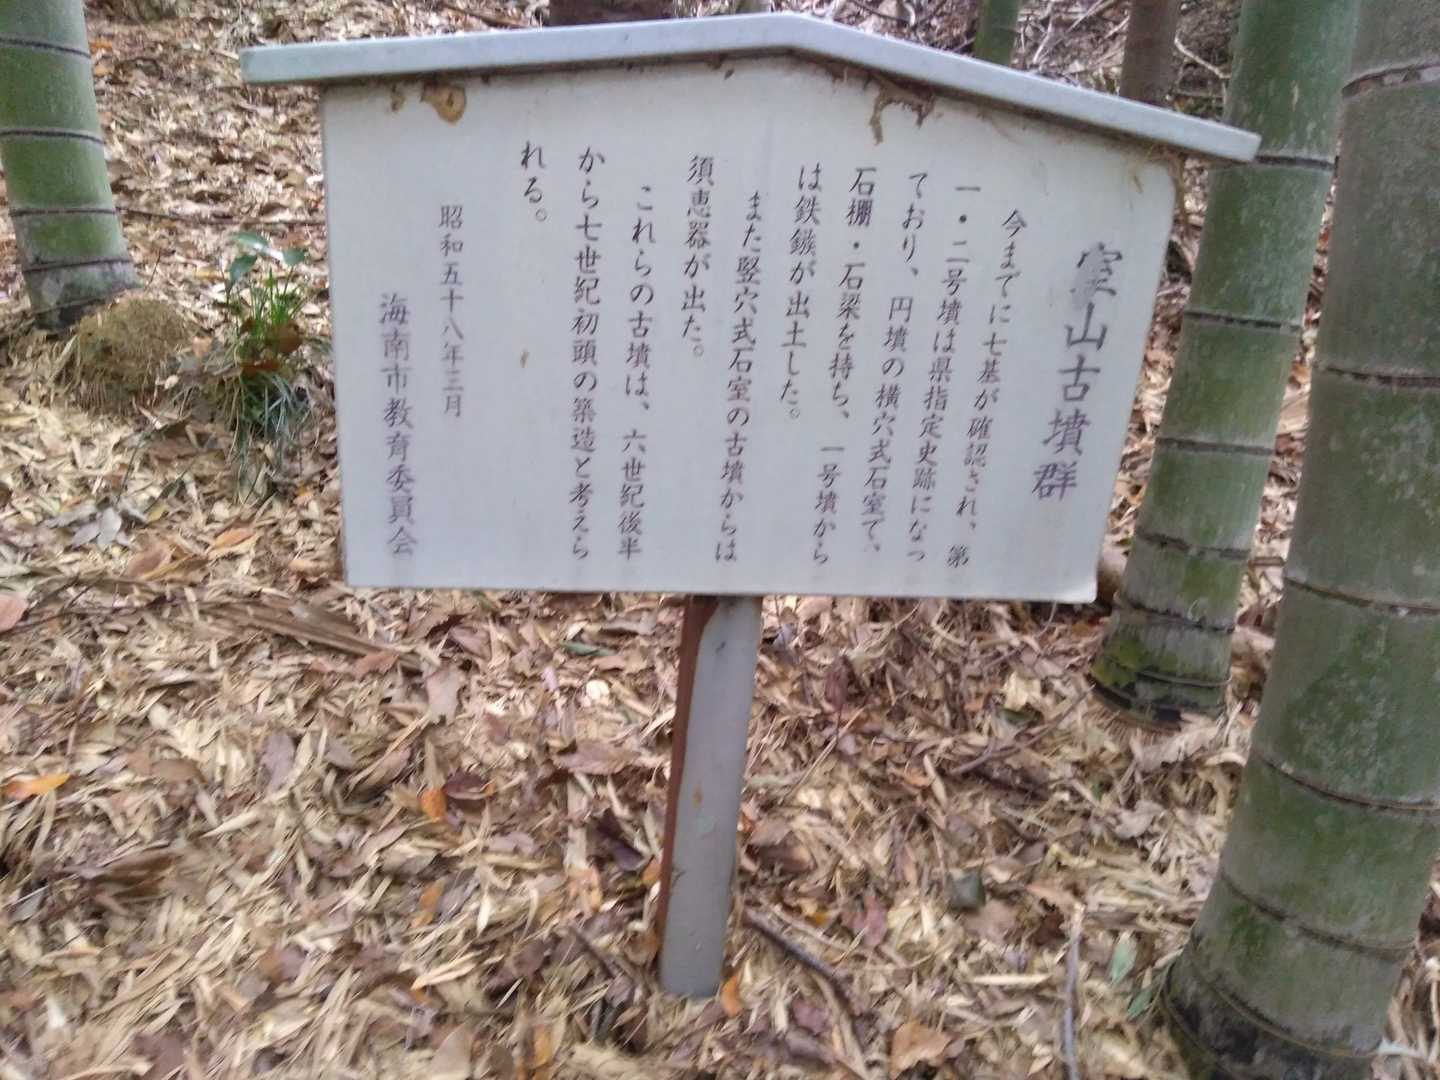 室山古墳群
今までに七基が確認され、第
一・二号墳は県指定史跡になっ
ており、円墳の横穴式石室で、
石棚・石梁を持ち、一号墳から
は鉄鏃が出土した。
また竪穴式石室の古墳からは
須恵器が出た。
これらの古墳は、六世紀後半
から七世紀初頭の築造と考えら
れる。
昭和五十八年三月
海南市教育委員会